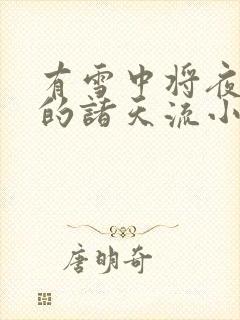 有雪中将夜
的諸天流小
唐明奇